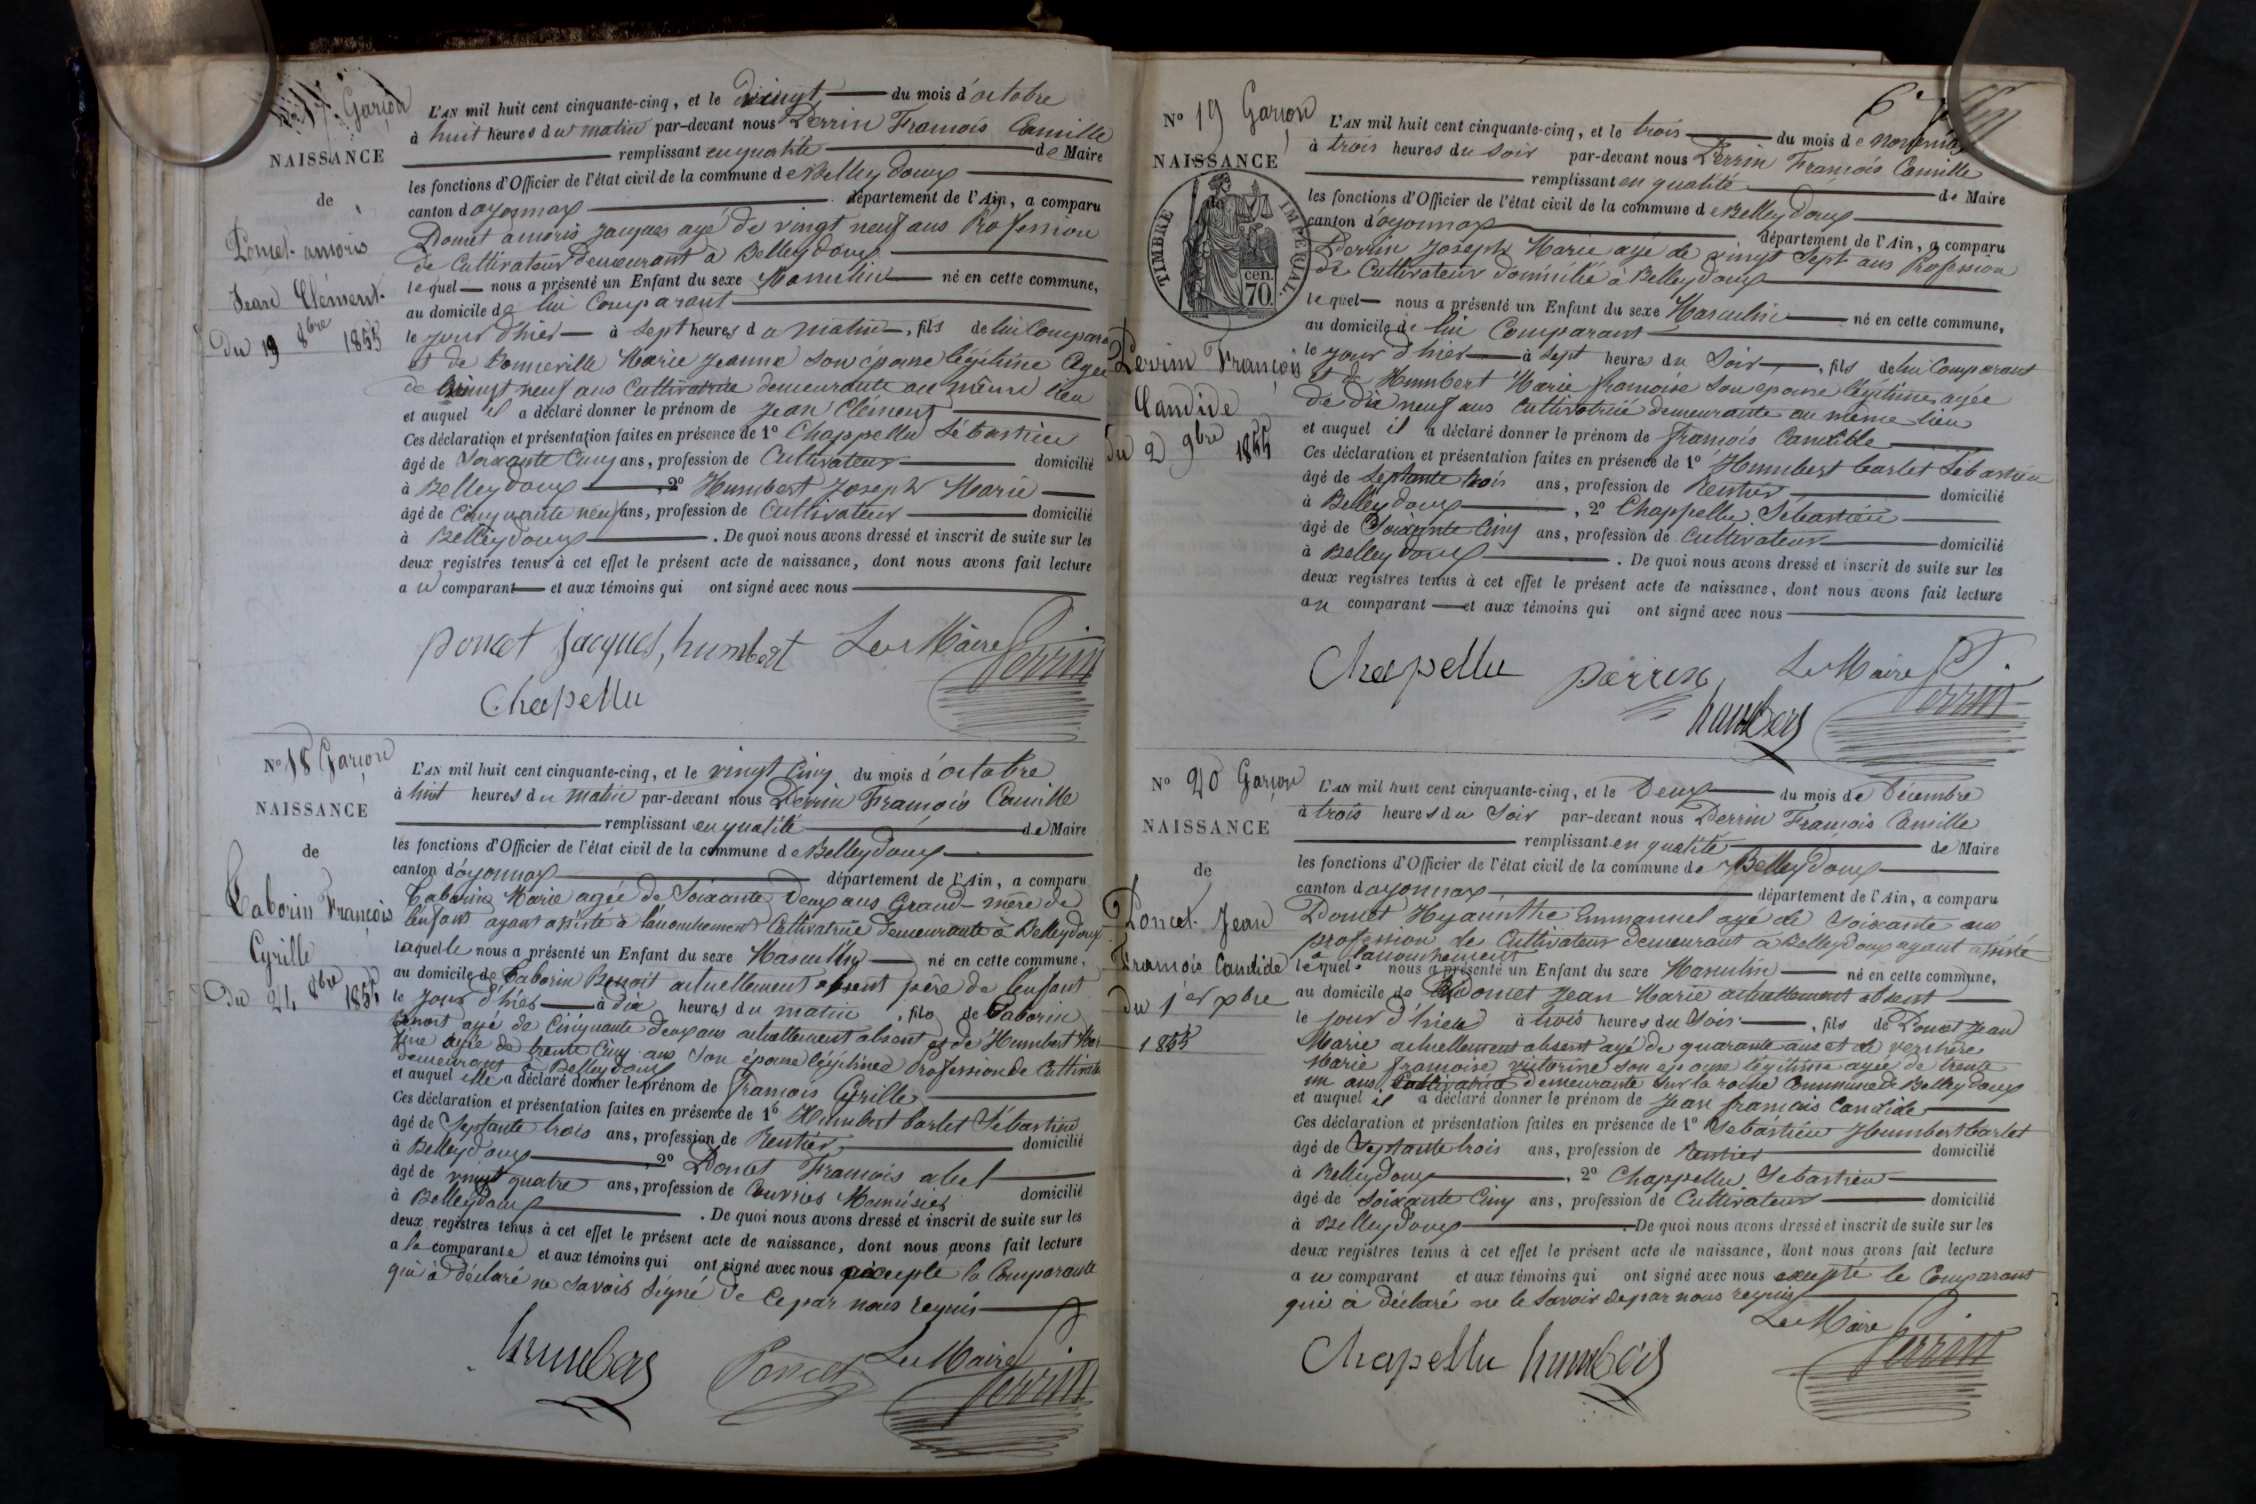 N° 17 Garçon
NAISSANCE
de
Poncet-amoris
Jean Clément
Du 19 8bre 1855
L'AN mil huit cent cinquante-cinq, et le vingt du mois d'octobre
à huit heures du matin par-devant nous Perrin François Camille
remplissant en qualité de Maire
les fonctions d'Officier de l'état civil de la commune de Belleydoux
canton d'oyonnax département de l'Ain, a comparu
Poncet amoris Jacques agé de vingt neuf ans Profession
de Cultivateur demeurant à Belleydoux
lequel nous a présenté un Enfant du sexe Masculin né en cette commune,
au domicile de lui Comparant
le jour d'hier à sept heures du matin, fils de lui Comparant
et de Bonneville Marie Jeanne son épouse légitime Agée
de vingt neuf ans Cultivatrice demeurante au même lieu
et auquel il a déclaré donner le prénom de Jean Clément
Ces déclaration et présentation faites en présence de 1° Chappellu Sébastien
âgé de Soixante Cinq ans, profession de Cultivateur domicilié
à Belleydoux, 2° Humbert Joseph Marie
âgé de Cinquante neuf ans, profession de Cultivateur domicilié
à Belleydoux. De quoi nous avons dressé et inscrit de suite sur les
deux registres tenus à cet effet le présent acte de naissance, dont nous avons fait lecture
au comparant et aux témoins qui ont signé avec nous
poncet jacques, humbert Le Maire Perrin
Chapellu
N° 18 Garçon
NAISSANCE
de
Taborin François
Cyrille
Du 24 8bre 1855
L'AN mil huit cent cinquante-cinq, et le vingt Cinq du mois d'octobre
à huit heures du matin par-devant nous Perrin François Camille
remplissant en qualité de Maire
les fonctions d'Officier de l'état civil de la commune de Belleydoux
canton d'oyonnax département de l'Ain, a comparu
Taborin Marie agée de Soixante Deux ans Grand-mère de
l'enfant ayant assisté à l'accouchement Cultivatrice demeurante à Belleydoux
laquelle nous a présenté un Enfant du sexe Masculin né en cette commune,
au domicile de Taborin Benoit actuellement absent père de l'enfant
le jour d'hier à dix heures du matin, fils de Taborin
Benoit agé de Cinquante deux ans actuellement absent et de Humbert
fine agée de trente Cinq ans son épouse légitime Profession de Cultivatrice
demeurant à Belleydoux
et auquel elle a déclaré donner le prénom de françois Cyrille
Ces déclaration et présentation faites en présence de 1° Humbert barlet Sébastien
âgé de Septante trois ans, profession de Rentier domicilié
à Belleydoux, 2° Poncet François abel
âgé de vingt quatre ans, profession de ouvrier Menuisier domicilié
à Belleydoux. De quoi nous avons dressé et inscrit de suite sur les
deux registres tenus à cet effet le présent acte de naissance, dont nous avons fait lecture
a la comparante et aux témoins qui ont signé avec nous excepté la Comparante
qui à déclaré ne savoir signé de Ce par nous requis
humbert Poncet Le Maire Perrin
6e
N° 19 Garçon
NAISSANCE
TIMBRE IMPERIAL.
cen.
70.
Perrin François
Candide
du 2 9bre 1855
L'AN mil huit cent cinquante-cinq, et le trois du mois de novembre
à trois heures du soir par-devant nous Perrin François Camille
remplissant en qualité de Maire
les fonctions d'Officier de l'état civil de la commune de Belleydoux
canton d'oyonnax département de l'Ain, a comparu
Perrin Joseph Marie agé de vingt Sept ans Profession
de Cultivateur domicilié à Belleydoux
lequel nous a présenté un Enfant du sexe Masculin né en cette commune,
au domicile de lui Comparant
le jour d'hier à sept heures du Soir, fils de lui Comparant
et de Humbert Marie françoise son epouse légitime agée
de dix neuf ans Cultivatrice demeurante au même lieu
et auquel il a déclaré donner le prénom de françois Candide
Ces déclaration et présentation faites en présence de 1° Humbert barlet Sébastien
âgé de septante trois ans, profession de Rentier domicilié
à Belleydoux, 2° Chappellu Sébastien
âgé de Soixante Cinq ans, profession de Cultivateur domicilié
à Belleydoux. De quoi nous avons dressé et inscrit de suite sur les
deux registres tenus à cet effet le présent acte de naissance, dont nous avons fait lecture
au comparant et aux témoins qui ont signé avec nous
Chapellu perrin Le Maire Perrin
humbert
N° 20 Garçon
NAISSANCE
de
Poncet Jean
François Candide
du 1er xbre
1855
L'AN mil huit cent cinquante-cinq, et le Deux du mois de Décembre
à trois heures du Soir par-devant nous Perrin François Camille
remplissant en qualité de Maire
les fonctions d'Officier de l'état civil de la commune de Belleydoux
canton d'oyonnax département de l'Ain, a comparu
Poncet Hyacinthe Emmanuel agé de soixante ans
profession de Cultivateur demeurant à Belleydoux ayant assisté
à l'accouchement
lequel nous a présenté un Enfant du sexe Masculin né en cette commune,
au domicile de Poncet Jean Marie actuellement absent
le jour d'hier à trois heures du Soir, fils de Poncet Jean
Marie actuellement absent agé de quarante ans et de verchère
Marie françoise victorine son epouse légitime agée de trente
un ans Cultivatrice demeurante sur la roche Commune de Belleydoux
et auquel il a déclaré donner le prénom de Jean françois Candide
Ces déclaration et présentation faites en présence de 1° Sébastien Humbert barlet
âgé de septante trois ans, profession de Rentier domicilié
à Belleydoux, 2° Chappellu Sébastien
âgé de soixante Cinq ans, profession de Cultivateur domicilié
à Belleydoux. De quoi nous avons dressé et inscrit de suite sur les
deux registres tenus à cet effet le présent acte de naissance, dont nous avons fait lecture
au comparant et aux témoins qui ont signé avec nous excepté le Comparant
qui à déclaré ne le savoir de par nous requis
Le Maire Perrin
Chapellu humbert